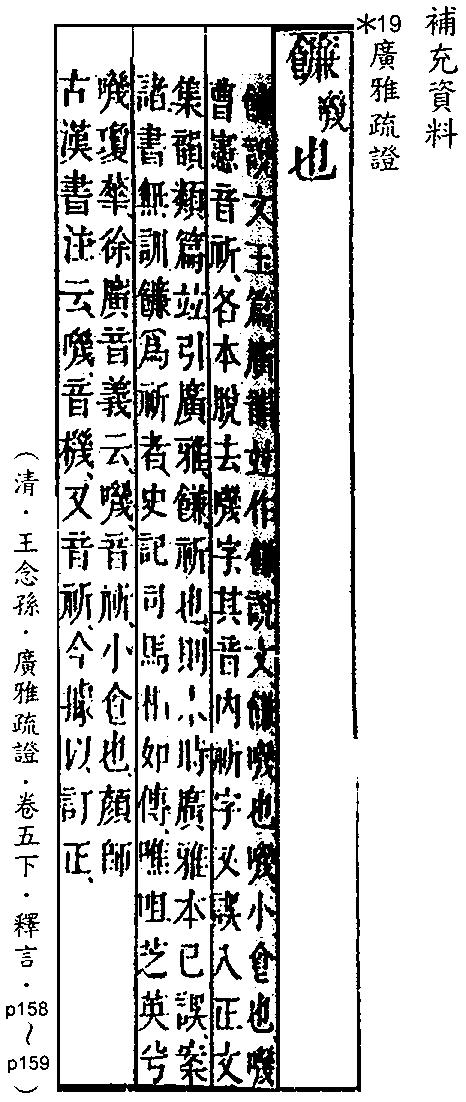 補充資料
*19廣雅疏證
䭑嘰也
䭑說文玉篇廣韻竝作䭑說文䭑嘰也嘰小食也嘰
曹憲音祈、各本脫去嘰字其音內祈字又誤入正文
集韻類篇竝引廣雅䭑祈也、則宋時廣雅本已誤、案
諸書無訓䭑爲祈者、史記司馬相如傳、噍咀芝英兮
嘰瓊華、徐廣音義云、嘰音祈、小食也、顏師
古漢書注云、嘰音機、又音祈、今據以訂正、
（清．王念孫．廣雅疏證．卷五下．釋言．p158～p159）